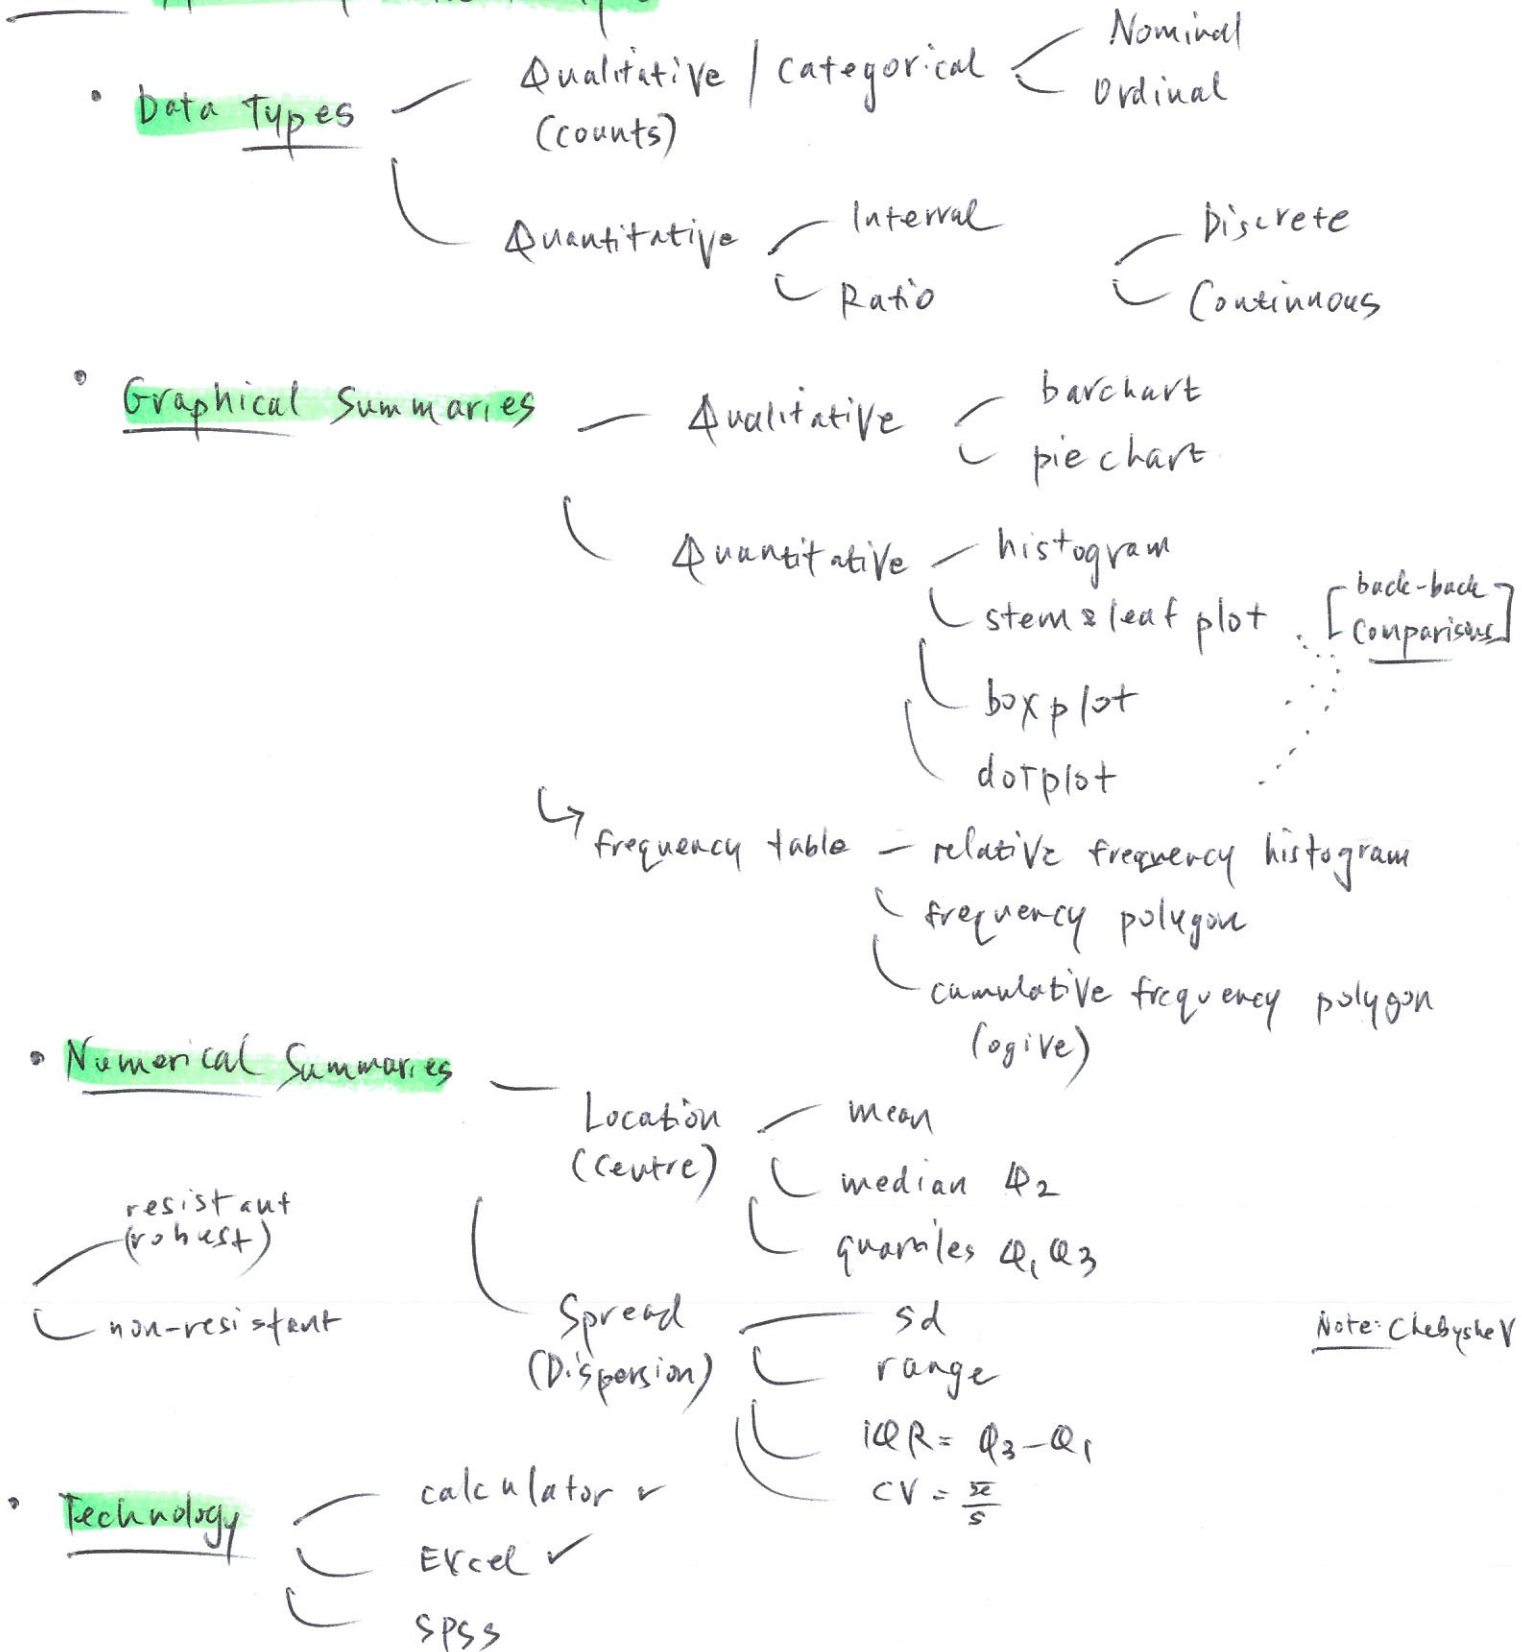 • Data Types
Qualitative / Categorical
(counts)
Nominal
Ordinal
Quantitative
Interval
Ratio
Discrete
Continuous
• Graphical Summaries
Qualitative
barchart
piechart
Quantitative
histogram
stem & leaf plot
[back-back
comparisons]
boxplot
dotplot
↳ frequency table – relative frequency histogram
frequency polygon
cumulative frequency polygon
(ogive)
• Numerical Summaries
Location
(Centre)
mean
median Q2
quartiles Q1 Q3
resistant
(robust)
non-resistant
Spread
(Dispersion)
sd
range
IQR = Q3-Q1
CV = x̄/s
Note: Chebyshev
• Technology
calculator ✓
Excel ✓
SPSS